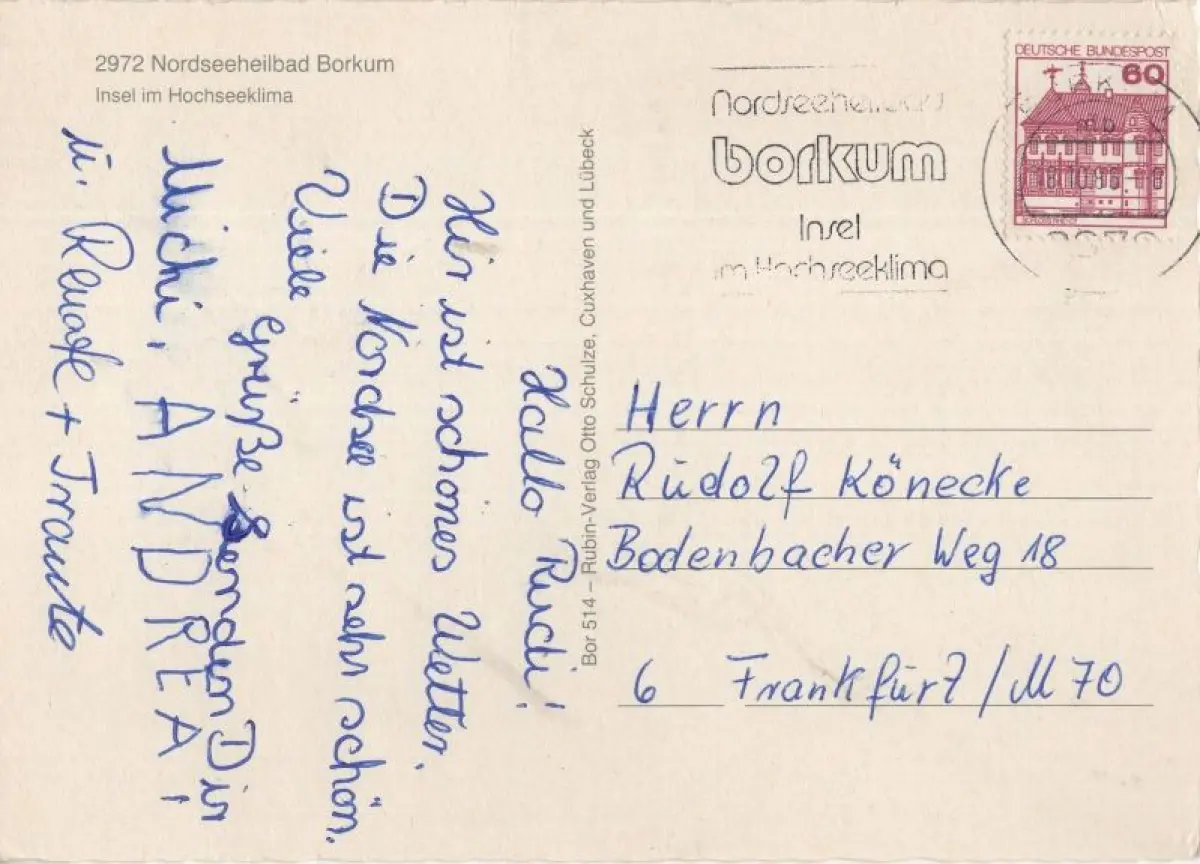 2972 Nordseeheilbad Borkum
Insel im Hochseeklima
Hallo Rudi!
Hir ist schönes Wetter.
Die Nordsee ist sehr schön.
Viele
Grüße Senden Dir
Michi, ANDREA!
u. Renate + Traute
Bor 514 – Rubin-Verlag Otto Schulze, Cuxhaven und Lübeck
Nordseeheilbad
borkum
Insel
im Hochseeklima
DEUTSCHE BUNDESPOST
60
Herrn
Rudolf Könecke
Bodenbacher Weg 18
6 Frankfurt/M 70